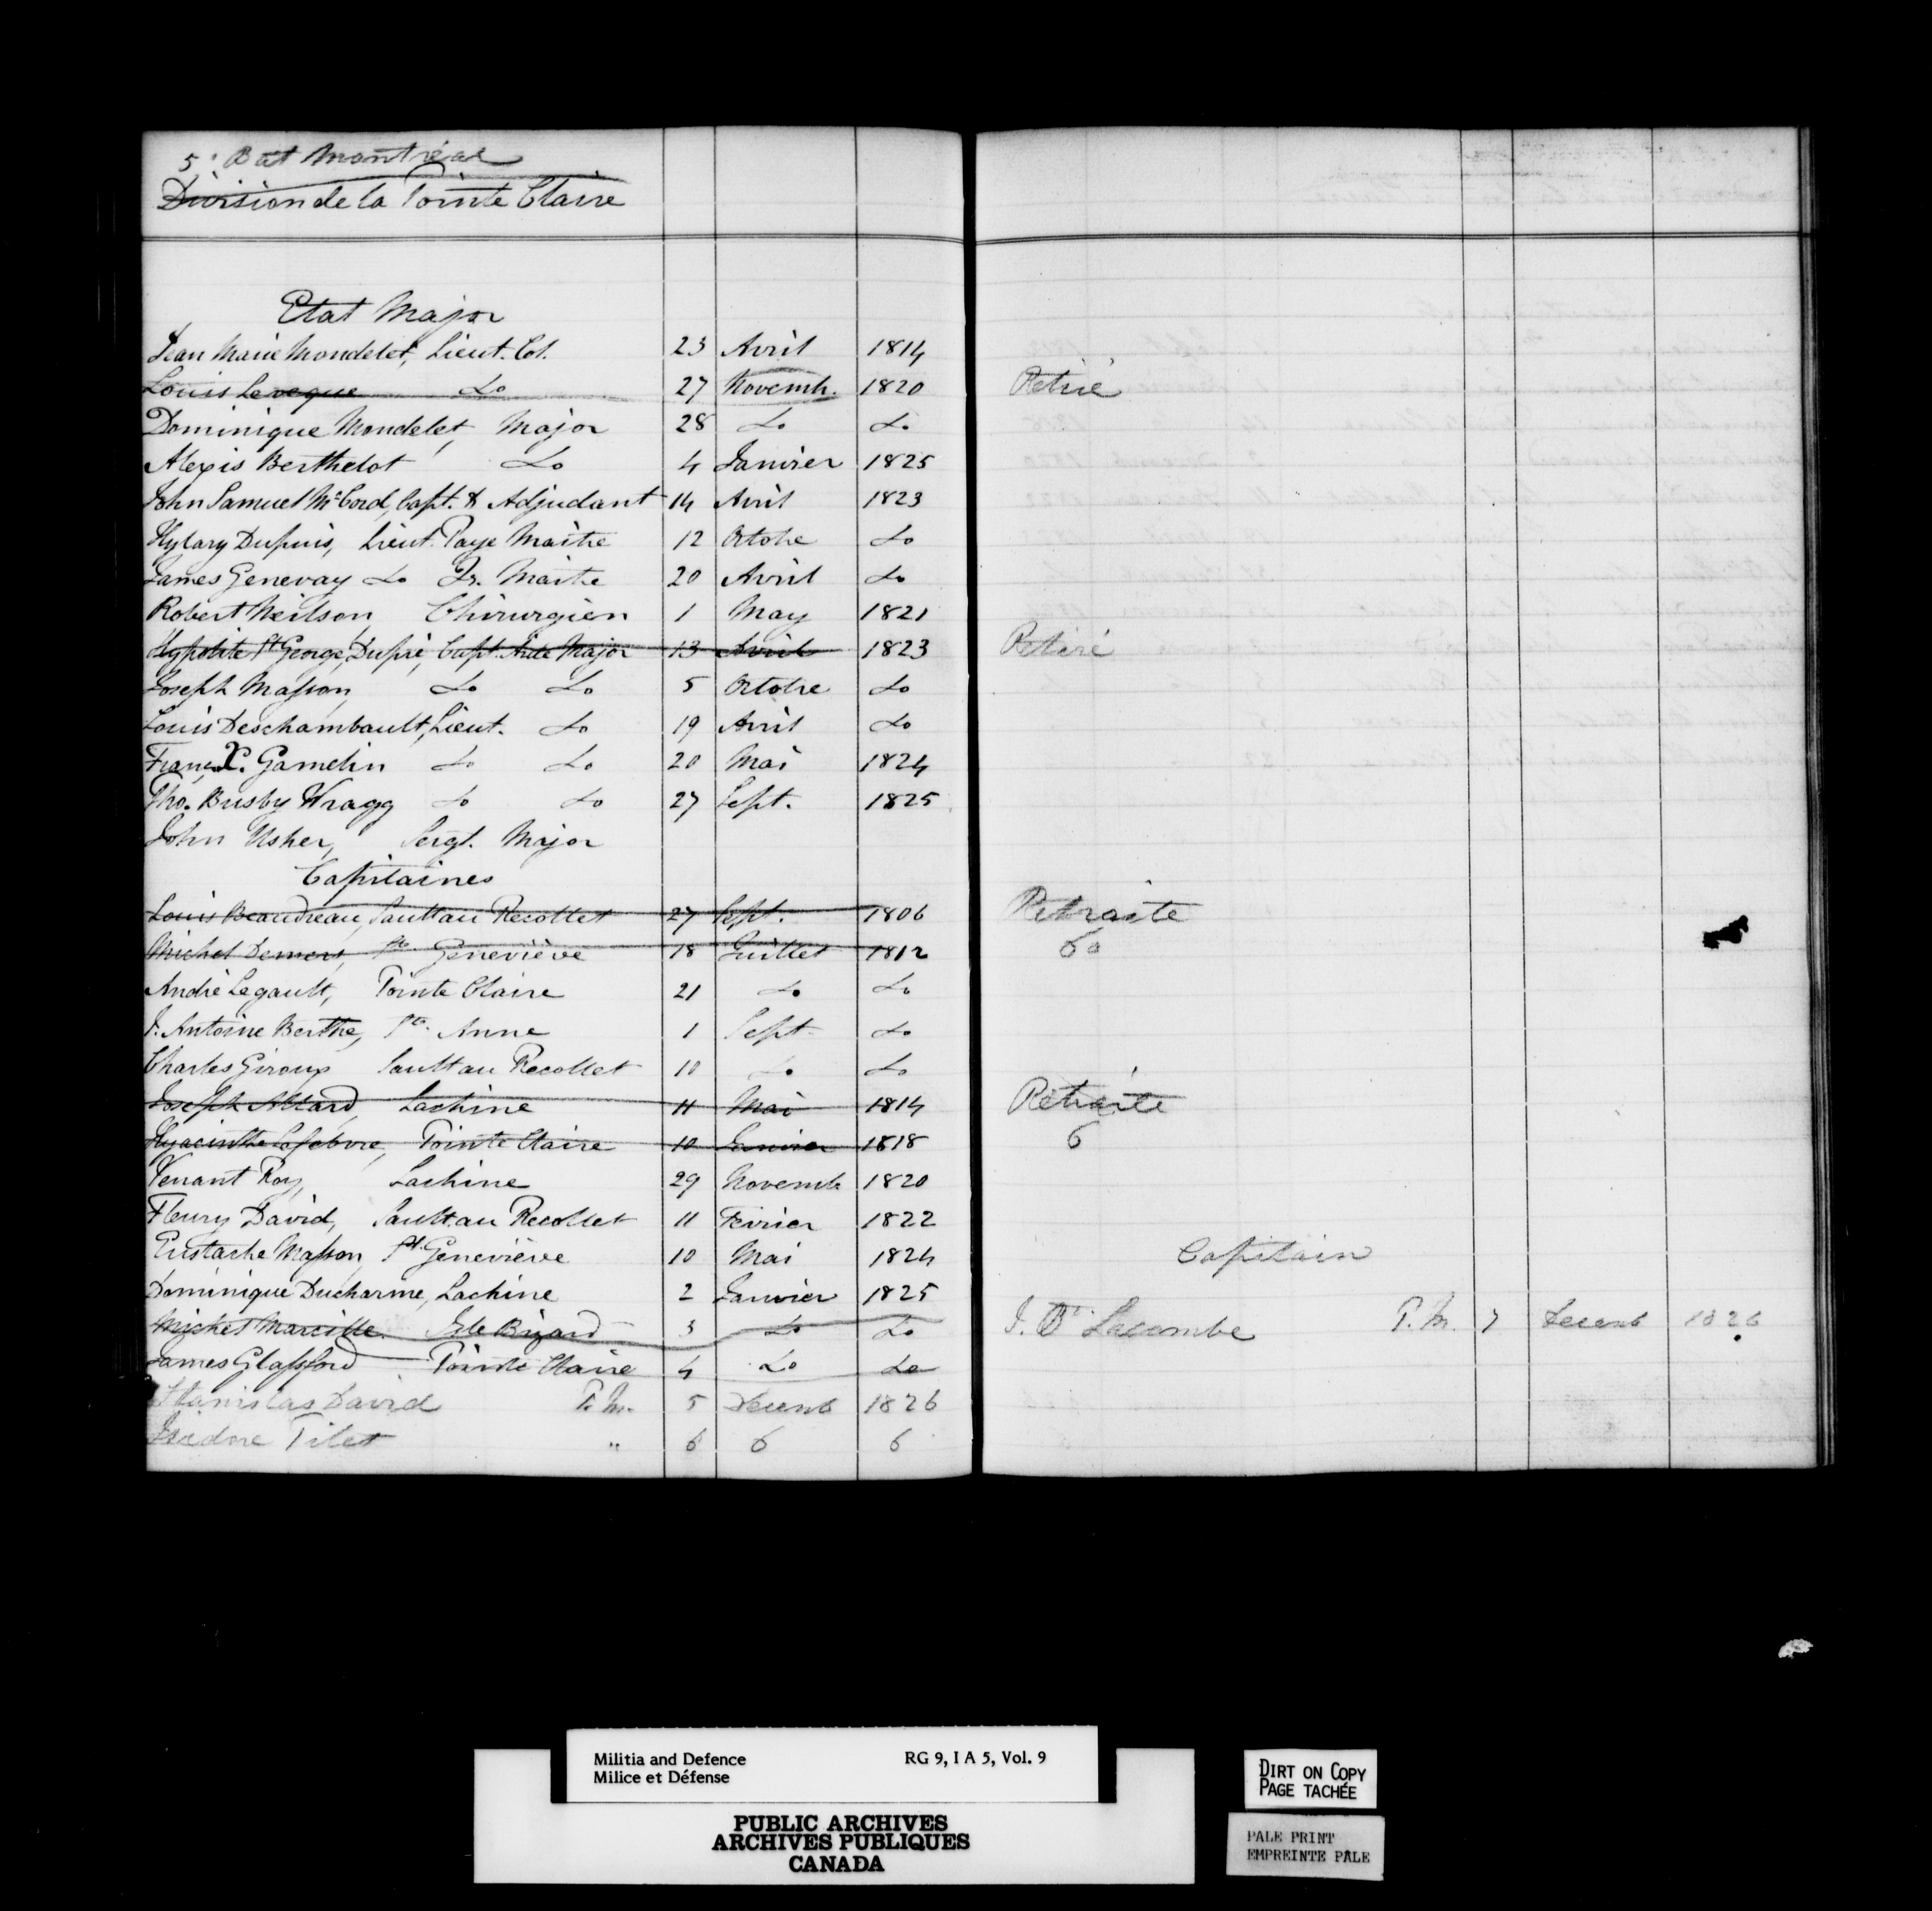 5e Bat Montréal
Division de la Pointe Claire
Etat Major
Jean Marie Mondelet, Lieut. Col. 23 Avril 1814
Louis Leveque Do 27 Novemb. 1820 Retiré
Dominique Mondelet, Major 28 Do Do
Alexis Berthelot Do 4 Janvier 1825
John Samuel McCord, Capt. & Adjudant 14 Avril 1823
Hylary Dupuis, Lieut. Paye Maitre 12 Octobre Do
James Genevay Do Qr. Maitre 20 Avril Do
Robert Neilson, Chirurgien 1 May 1821
Hypolite St George Dupré, Capt. Aide Major 13 Avril 1823 Retiré
Joseph Masson, Do Do 5 Octobre Do
Louis Deschambault, Lieut. Do 19 Avril Do
Franç. X. Gamelin Do Do 20 Mai 1824
Tho. Busby Wragg Do Do 27 Sept. 1825
John Usher, Sergt. Major
Capitaines
Louis Beaudreau, Sault au Recollet 27 Sept. 1806 Retraite
Michel Demers, Ste. Geneviève 18 Juillet 1812 Do
André Legault, Pointe Claire 21 Do Do
J. Antoine Berthe, Ste. Anne 1 Sept. Do
Charles Giroux Sault au Recollet 10 Do Do
Joseph Allard, Lachine 11 Mai 1814 Retraite
Hyacinthe Lefebvre, Pointe Claire 10 Janvier 1818 6
Venant Roy, Lachine 29 Novemb 1820
Fleury David, Sault au Recollet 11 Fevrier 1822
Eustache Masson, St. Geneviève 10 Mai 1824 Capitain
Dominique Ducharme, Lachine 2 Janvier 1825
Michel Marcille Isle Bizard 3 Do Do J. Bte Lacombe P. M. 7 Decemb 1826
James Glassford Pointe Claire 4 Do Do
Stanislas David P. M. 5 Decemb 1826
Isidore Tilet " 6 6 6
Militia and Defence RG 9, I A 5, Vol. 9
Milice et Défense
PUBLIC ARCHIVES
ARCHIVES PUBLIQUES
CANADA
DIRT ON COPY
PAGE TACHÉE
PALE PRINT
EMPREINTE PÂLE